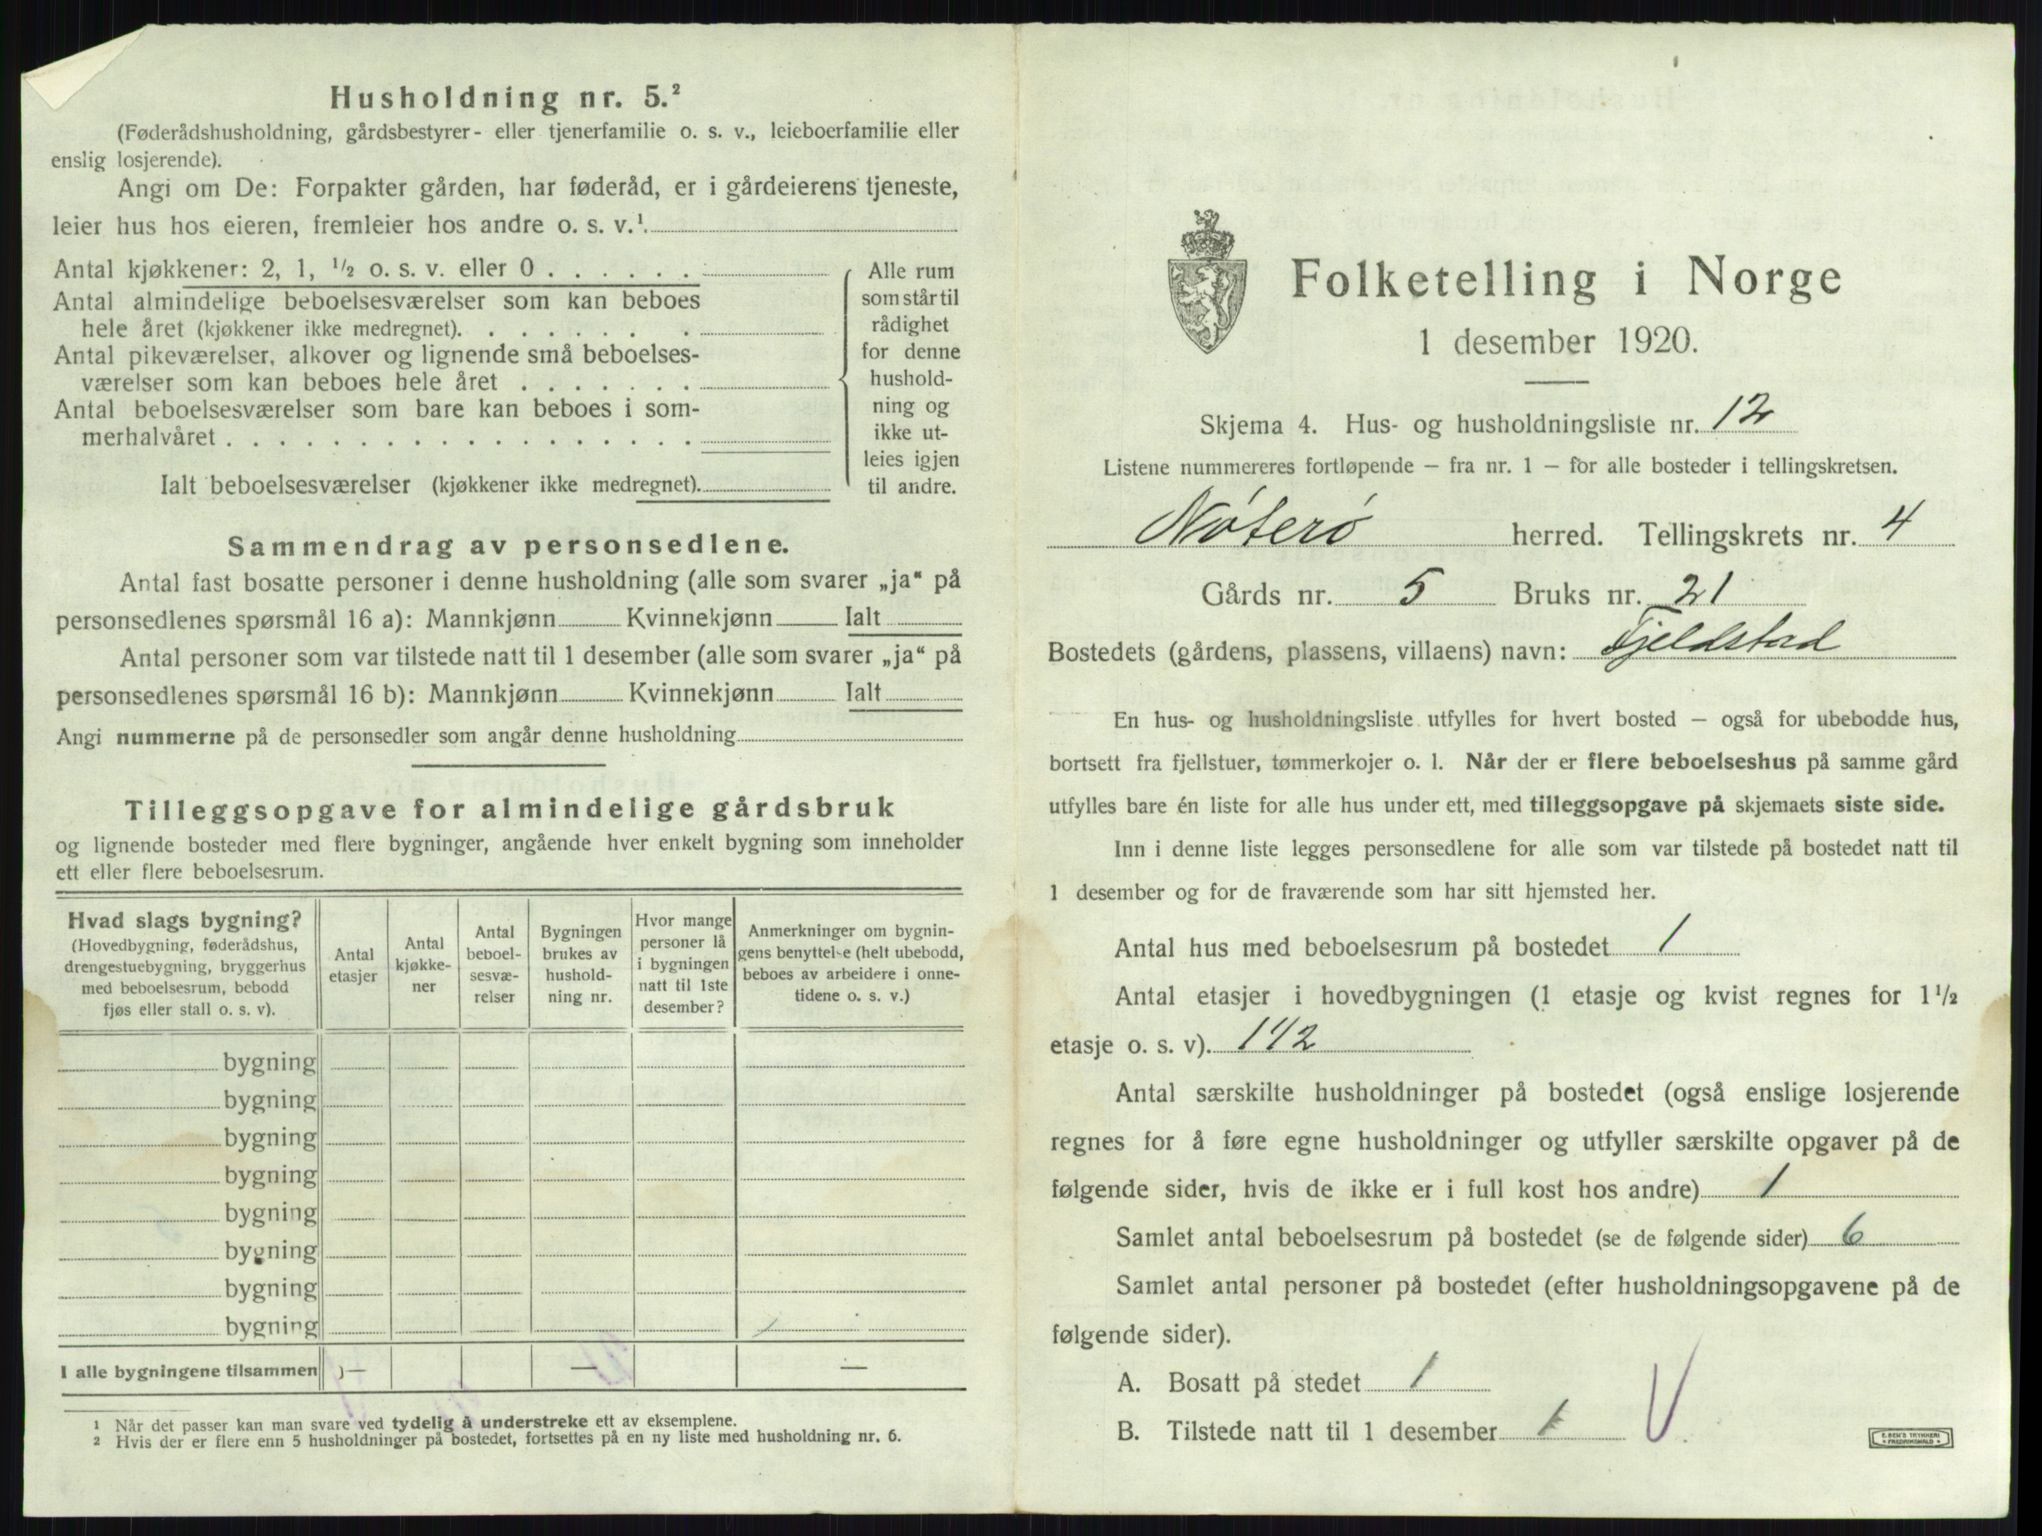 Husholdning nr. 5.²
(Føderådshusholdning, gårdsbestyrer- eller tjenerfamilie o. s. v., leieboerfamilie eller
enslig losjerende).
Angi om De: Forpakter gården, har føderåd, er i gårdeierens tjeneste,
leier hus hos eieren, fremleier hos andre o. s. v.¹.
Antal kjøkkener: 2, 1, ½ o. s. v. eller 0 . . . . . .
Antal almindelige beboelsesværelser som kan beboes
hele året (kjøkkener ikke medregnet). . . . . . . .
Antal pikeværelser, alkover og lignende små beboelses-
værelser som kan beboes hele året . . . . . . .
Antal beboelsesværelser som bare kan beboes i som-
merhalvåret . . . . . . . . . . . . . . . . . .
Ialt beboelsesværelser (kjøkkener ikke medregnet).
Alle rum
som står til
rådighet
for denne
hushold-
ning og
ikke ut-
leies igjen
til andre.
Sammendrag av personsedlene.
Antal fast bosatte personer i denne husholdning (alle som svarer „ja“ på
personsedlenes spørsmål 16 a): Mannkjønn Kvinnekjønn Ialt
Antal personer som var tilstede natt til 1 desember (alle som svarer „ja“ på
personsedlenes spørsmål 16 b): Mannkjønn Kvinnekjønn Ialt
Angi nummerne på de personsedler som angår denne husholdning
Tilleggsopgave for almindelige gårdsbruk
og lignende bosteder med flere bygninger, angående hver enkelt bygning som inneholder
ett eller flere beboelsesrum.
Hvad slags bygning?
(Hovedbygning, føderådshus,
drengestuebygning, bryggerhus
med beboelsesrum, bebodd
fjøs eller stall o. s. v).
Antal
etasjer
Antal
kjøkke-
ner
Antal
beboel-
sesvæ-
relser
Bygningen
brukes av
hushold-
ning nr.
Hvor mange
personer lå
i bygningen
natt til 1ste
desember?
Anmerkninger om bygnin-
gens benyttelse (helt ubebodd,
beboes av arbeidere i onne-
tidene o. s. v.)
bygning
bygning
bygning
bygning
bygning
bygning
bygning
bygning
I alle bygningene tilsammen — — —
¹ Når det passer kan man svare ved tydelig å understreke ett av eksemplene.
² Hvis der er flere enn 5 husholdninger på bostedet, fortsettes på en ny liste med husholdning nr. 6.
Folketelling i Norge
1 desember 1920.
Skjema 4. Hus- og husholdningsliste nr. 12
Listene nummereres fortløpende – fra nr. 1 – for alle bosteder i tellingskretsen.
Nøterø herred. Tellingskrets nr. 4
Gårds nr. 5 Bruks nr. 21
Bostedets (gårdens, plassens, villaens) navn: Fjeldstad
En hus- og husholdningsliste utfylles for hvert bosted – også for ubebodde hus,
bortsett fra fjellstuer, tømmerkojer o. l. Når der er flere beboelseshus på samme gård
utfylles bare én liste for alle hus under ett, med tilleggsopgave på skjemaets siste side.
Inn i denne liste legges personsedlene for alle som var tilstede på bostedet natt til
1 desember og for de fraværende som har sitt hjemsted her.
Antal hus med beboelsesrum på bostedet 1
Antal etasjer i hovedbygningen (1 etasje og kvist regnes for 1½
etasje o. s. v). 1 1/2
Antal særskilte husholdninger på bostedet (også enslige losjerende
regnes for å føre egne husholdninger og utfyller særskilte opgaver på de
følgende sider, hvis de ikke er i full kost hos andre) 1
Samlet antal beboelsesrum på bostedet (se de følgende sider) 6
Samlet antal personer på bostedet (efter husholdningsopgavene på de
følgende sider).
A. Bosatt på stedet 1
B. Tilstede natt til 1 desember 1